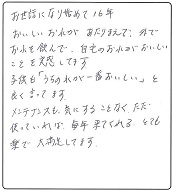 お世話になり始めて16年
おいしいお水が あたりまえで、外で
お水を飲んで、自宅のお水がおいしい
ことを実感してます
子供も「うちの水が一番おいしい」と
良く言ってます。
メンテナンスも、気にすることなく、ただ
使っていれば、毎年 来てくれる、とても
楽で 大満足してます。